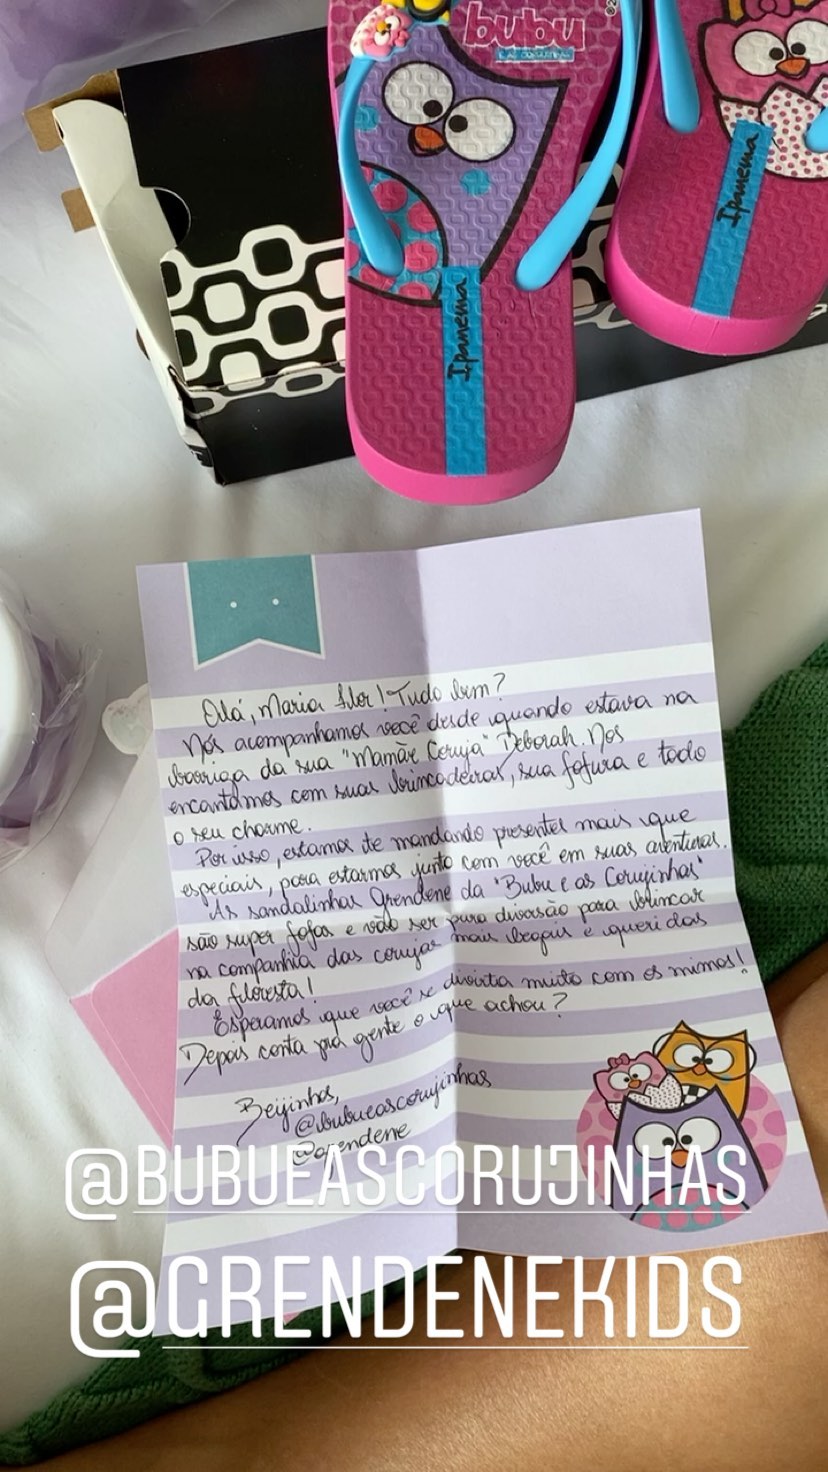 bubu
E AS CORUJINHAS
Ipanema
Ipanema
Olá, Maria flor! Tudo bem?
Nós acompanhamos você desde quando estava na
barriga da sua "Mamãe Coruja" Deborah. Nos
encantamos com suas brincadeiras, sua fofura e todo
o seu charme.
Por isso, estamos te mandando presentes mais que
especiais, para estarmos junto com você em suas aventuras.
As sandalinhas Grendene da "Bubu e as Corujinhas"
são super fofas e vão ser pura diversão para brincar
na companhia das corujas mais legais e queridas
da floresta!
Esperamos que você se divirta muito com os mimos!
Depois conta pra gente o que achou?
Beijinhos,
@bubueascorujinhas
@grendene
@BUBUEASCORUJINHAS
@GRENDENEKIDS